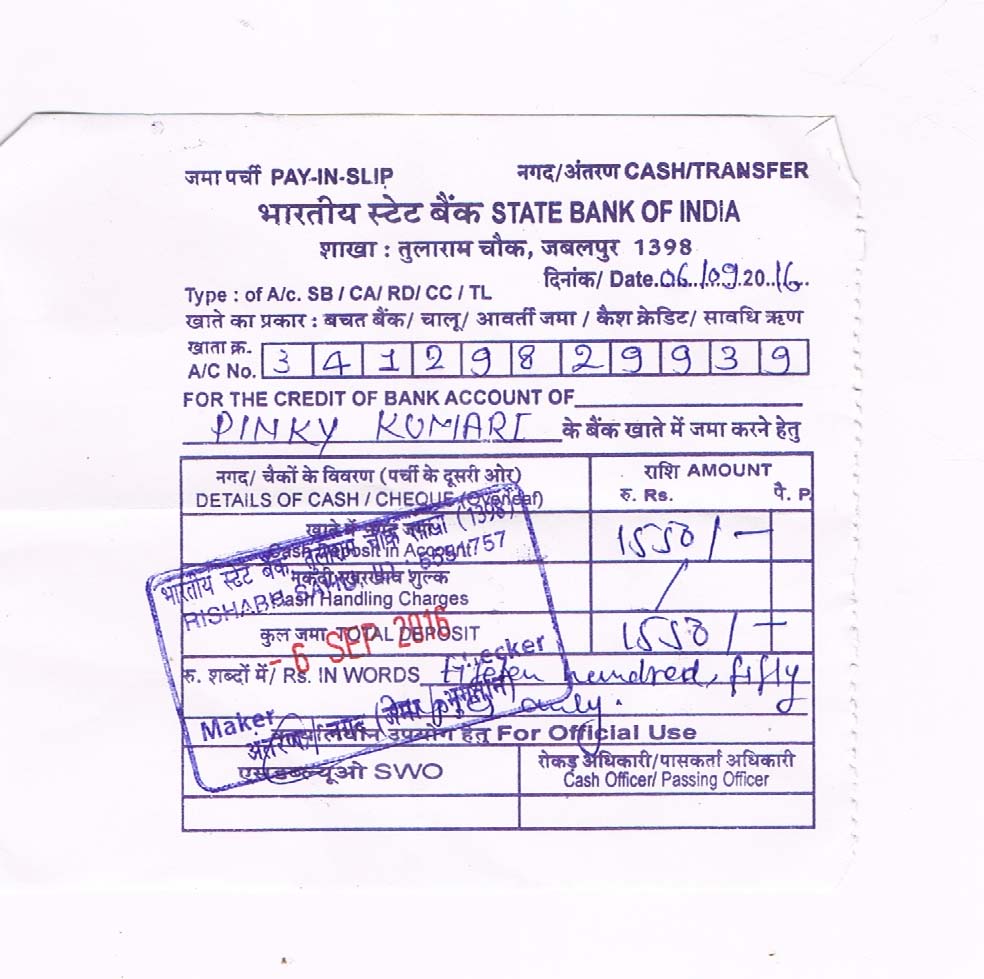 जमा पर्ची PAY-IN-SLIP नगद/अंतरण CASH/TRANSFER
भारतीय स्टेट बैंक STATE BANK OF INDIA
शाखा : तुलाराम चौक, जबलपुर 1398
दिनांक/ Date.06/09.20.16.
Type : of A/c. SB / CA/ RD/ CC / TL
खाते का प्रकार : बचत बैंक/ चालू/ आवर्ती जमा / कैश क्रेडिट/ सावधि ऋण
खाता क्र.
A/C No. 3 4 1 2 9 8 2 9 9 3 9
FOR THE CREDIT OF BANK ACCOUNT OF
PINKY KUMARI के बैंक खाते में जमा करने हेतु
नगद/ चैकों के विवरण (पर्ची के दूसरी ओर) राशि AMOUNT
DETAILS OF CASH / CHEQUE (Overleaf) रु. Rs. पै. P.
खाते में नगद जमा
Cash Deposit in Account 1550/-
शुल्क
Cash Handling Charges
कुल जमा TOTAL DEPOSIT 1550/-
रु. शब्दों में/ Rs. IN WORDS fifteen hundred, fifty
only.
उपयोग हेतु For Official Use
एसडब्ल्यूओ SWO रोकड़ अधिकारी/पासकर्ता अधिकारी
Cash Officer/ Passing Officer
भारतीय स्टेट बैंक, तुलाराम चौक शाखा (1398)
RISHABH SAHU
- 6 SEP 2016
Maker Checker